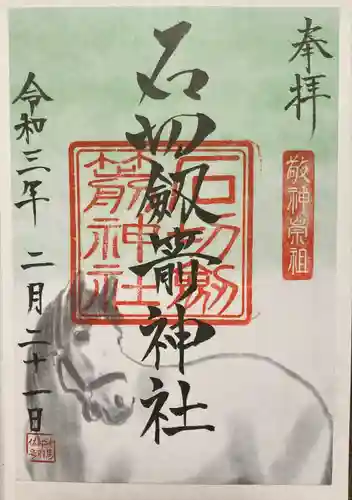 奉拝
敬神崇祖
石切劔箭神社
石切劔箭神社
令和三年 二月二十一日